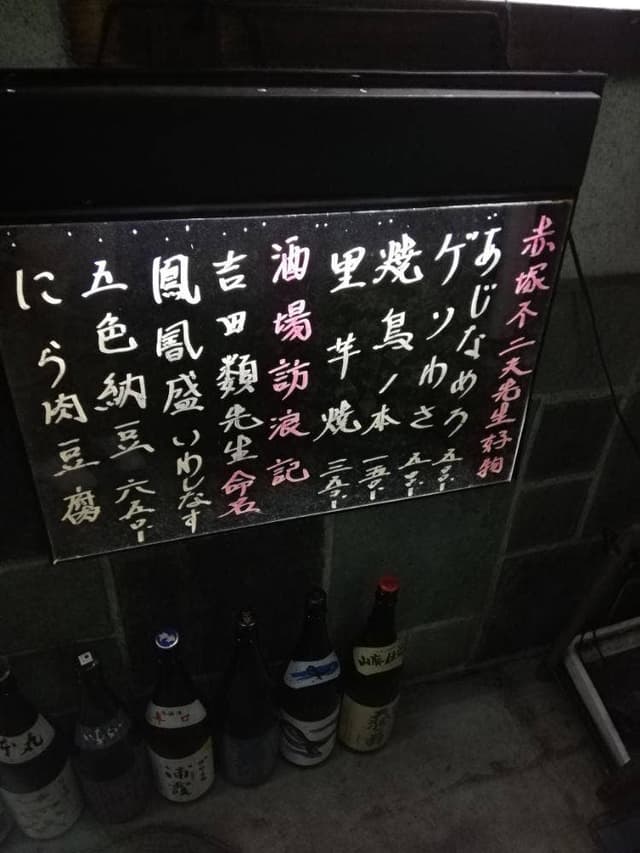 赤塚不二夫先生好物
あじなめろう 五〇〇.-
ゲソわさ 五〇.-
焼鳥ノ本 一五〇.-
里芋焼 三五〇.-
酒場訪浪記
吉田類先生命名
鳳凰盛いわしなす
五色納豆 六五〇.-
にら肉豆腐
辛口
浦霞